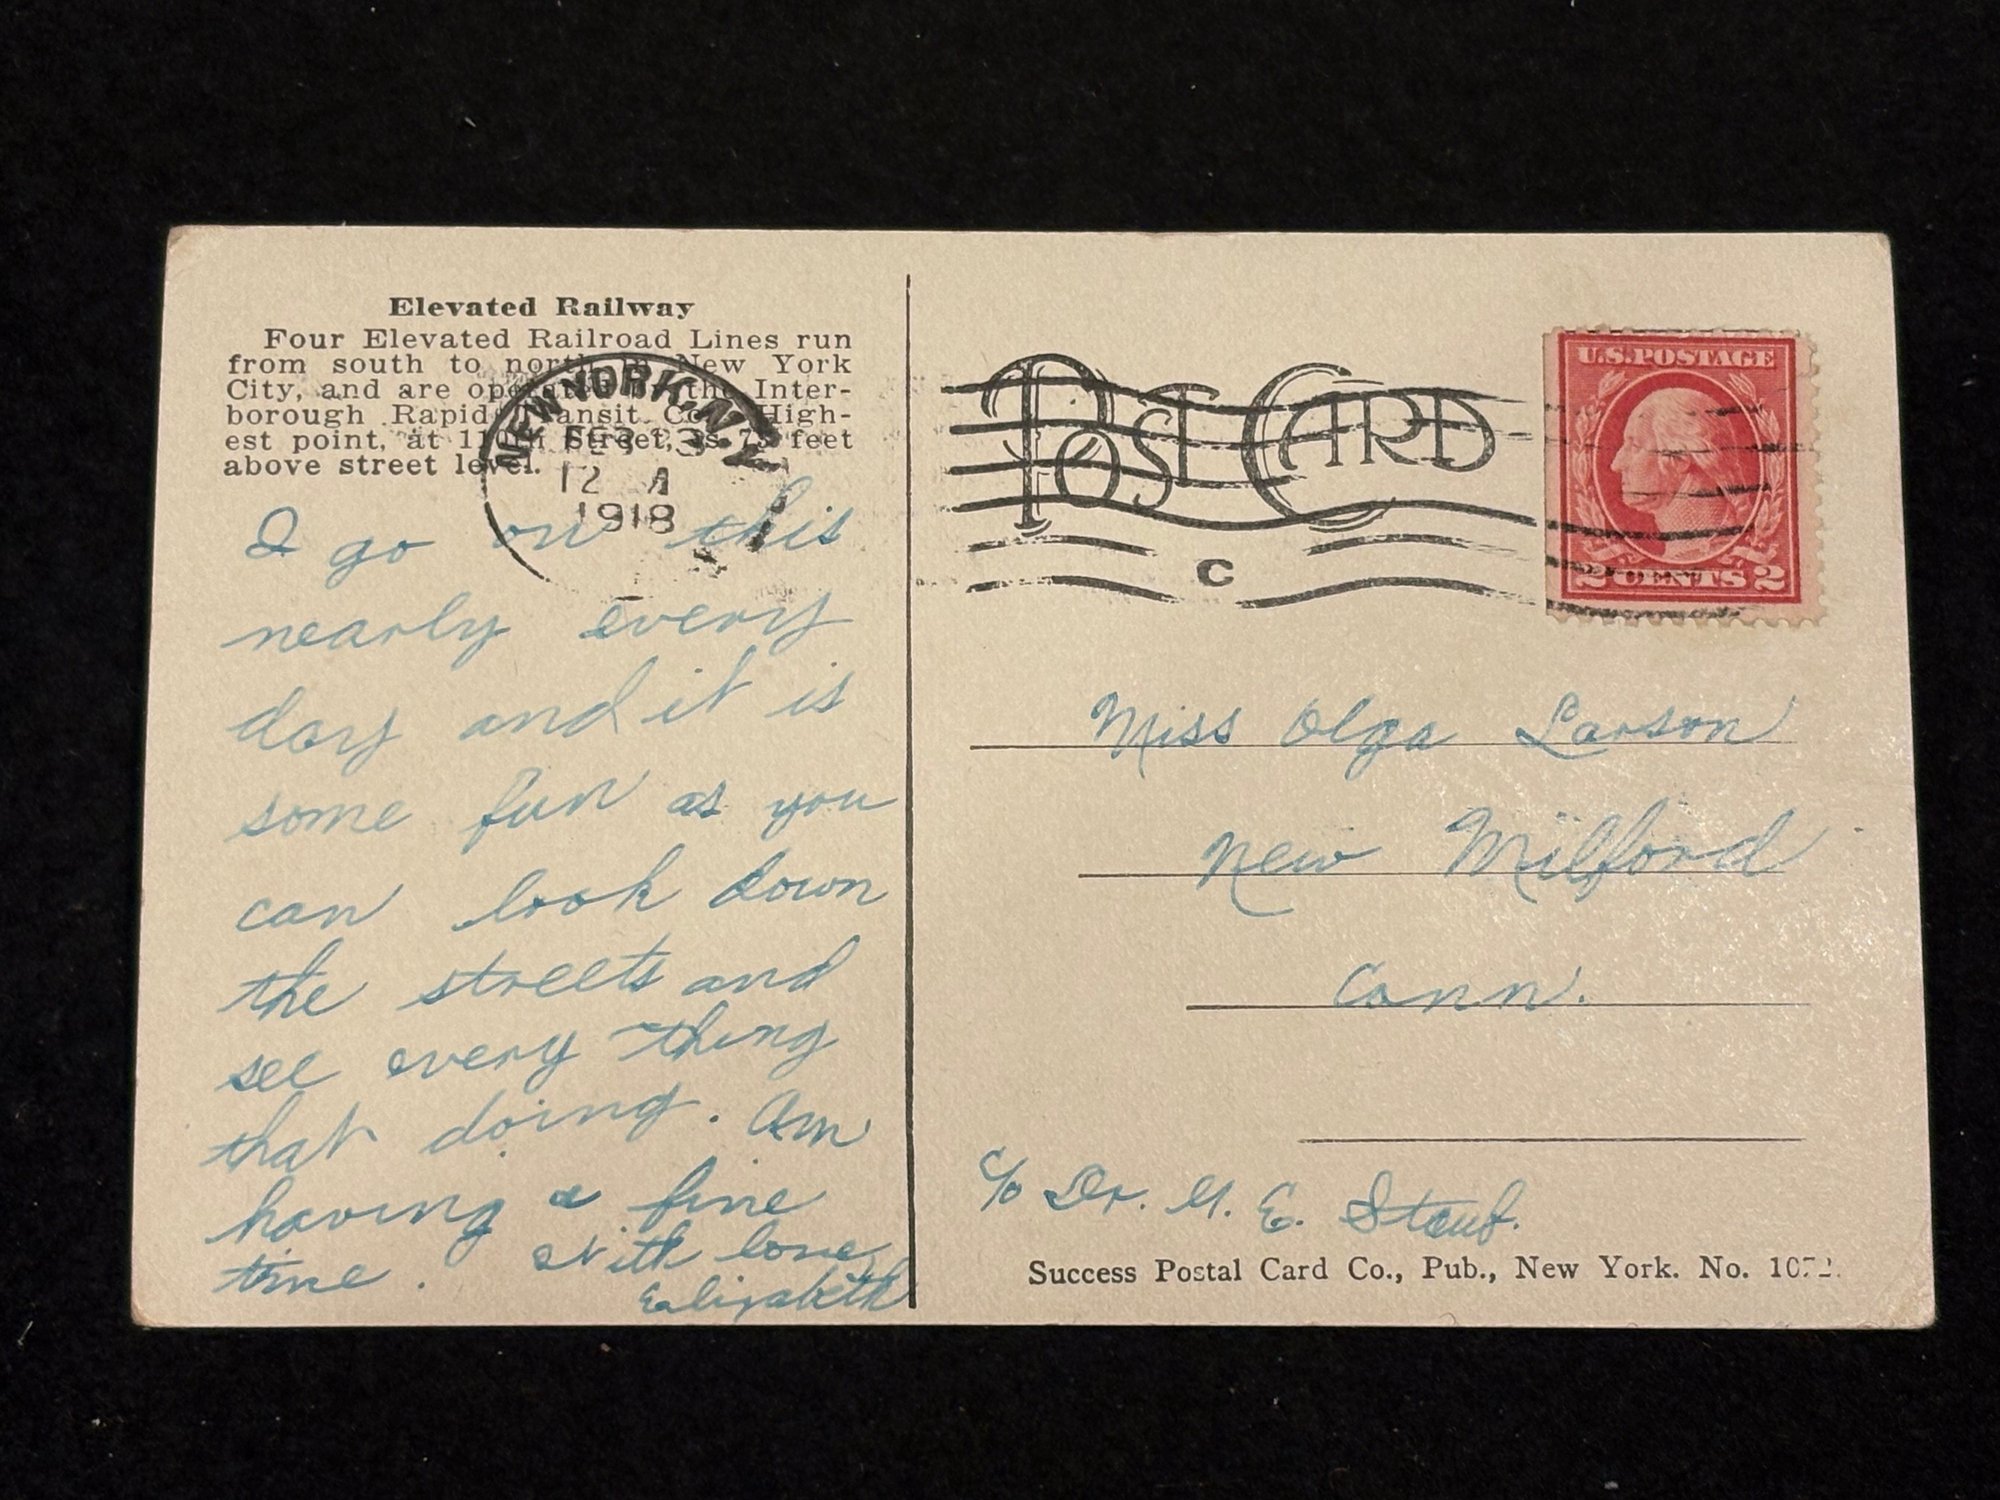 Elevated Railway
Four Elevated Railroad Lines run
from south to north in New York
City, and are operated by the Inter-
borough Rapid Transit Co. High-
est point, at 110th Street, is 75 feet
above street level.
NEW YORK, N.Y.
FEB 3
12 A
1918
I go on this
nearly every
day and it is
some fun as you
can look down
the streets and
see every thing
that doing. Am
having a fine
time. With love,
Elizabeth
POST CARD
C
U.S. POSTAGE
2 CENTS 2
Miss Olga Larson
New Milford
Conn.
c/o Dr. G. E. Staub.
Success Postal Card Co., Pub., New York. No.